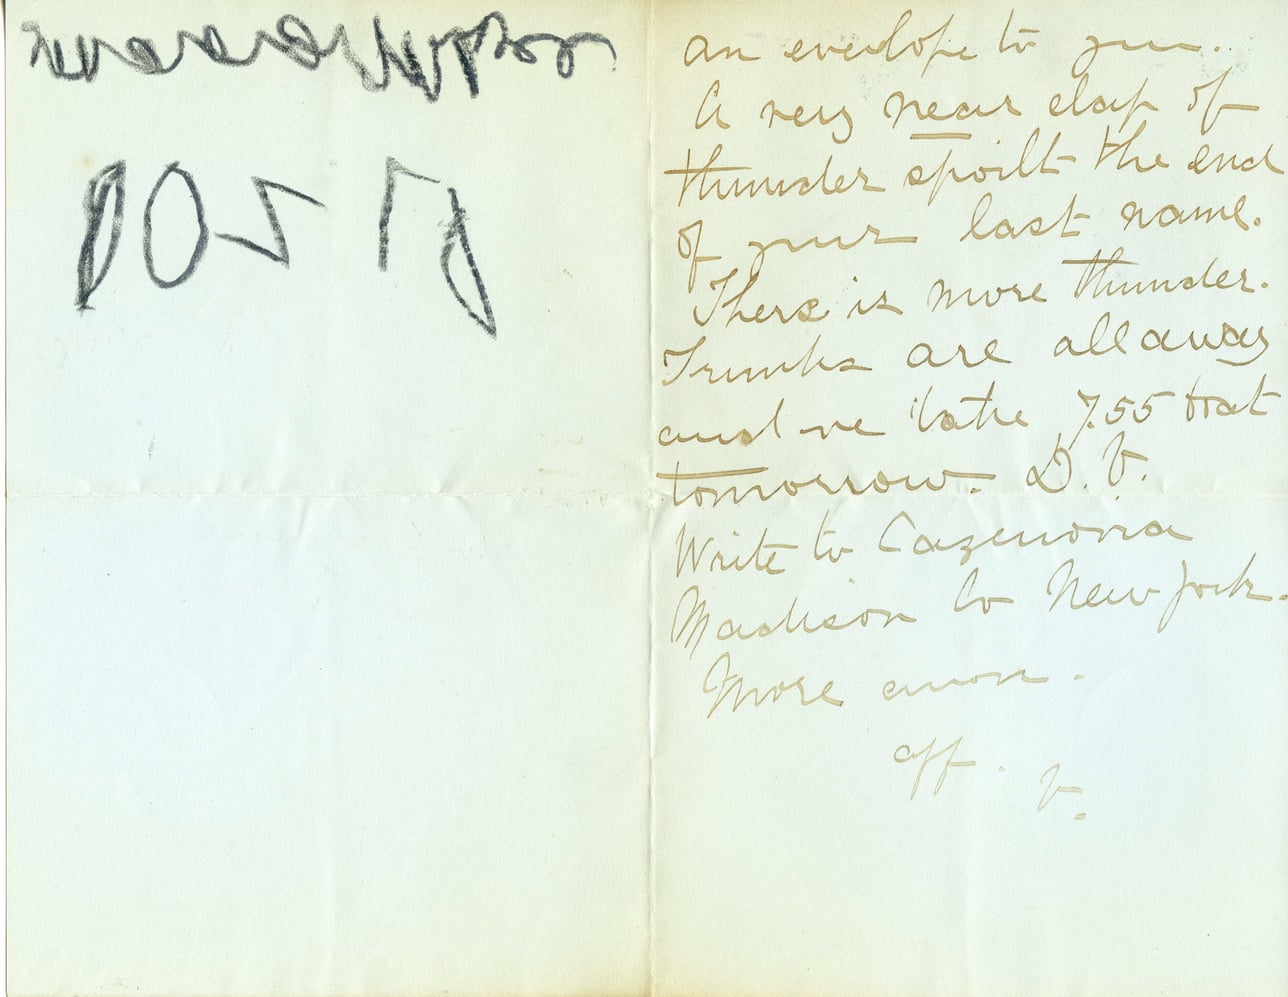 an envelope to you.
A very near clap of
thunder spoilt the end
of your last name.
There is more thunder.
Trunks are all away
and we take 7.55 boat
tomorrow. D. V.
Write to Cazenovia
Madison Co New York.
More anon.
aff. V.